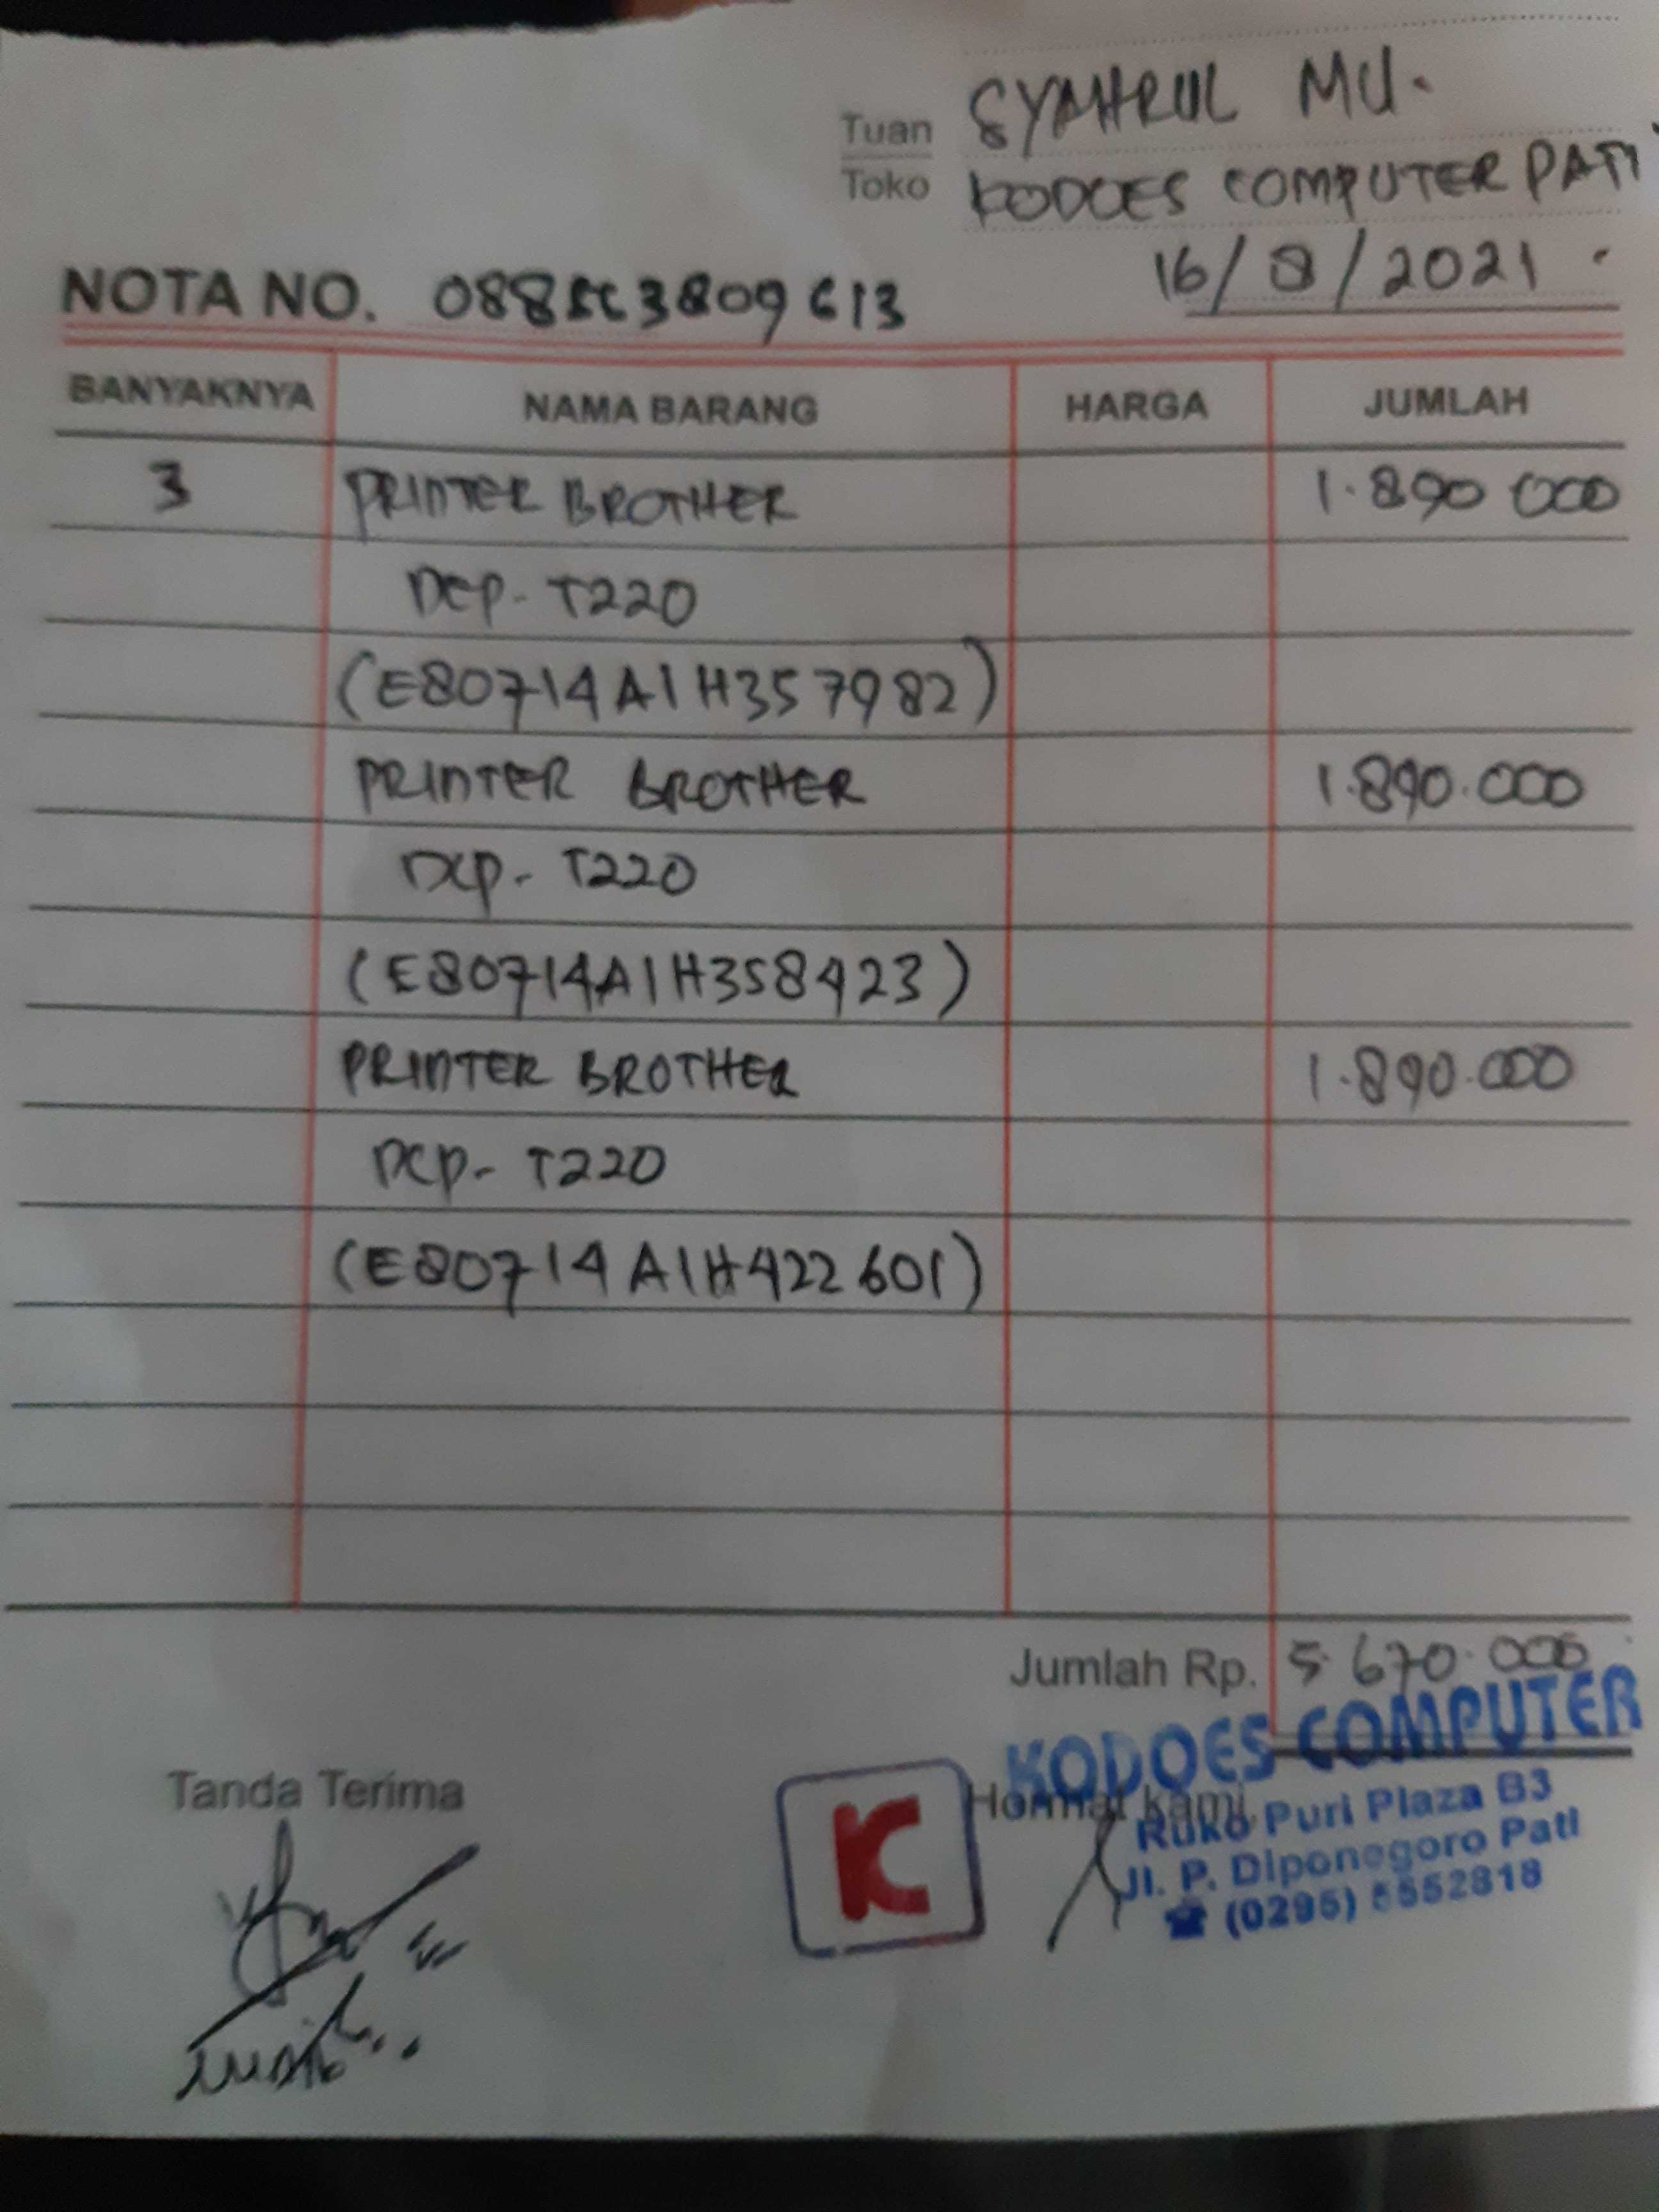 Tuan SYAHRUL MU.
Toko KODOES COMPUTER PATI
16/8/2021
NOTA NO.
BANYAKNYA NAMA BARANG HARGA JUMLAH
3 PRINTER BROTHER 1.890 000
DCP- T220
(E80714A1H357982)
PRINTER BROTHER 1.890.000
DCP- T220
(E80714A1H358423)
PRINTER BROTHER 1.890.000
DCP- T220
(E80714A1H422601)
Jumlah Rp. 5.670.000
KODOES COMPUTER
Tanda Terima K Hormat kami,
Ruko Puri Plaza B3
Jl. P. Diponegoro Pati
☎ (0295)